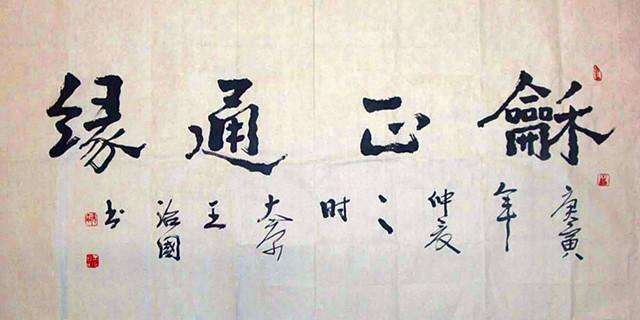 龢正通緣
庚寅年仲夏之时大王治國书